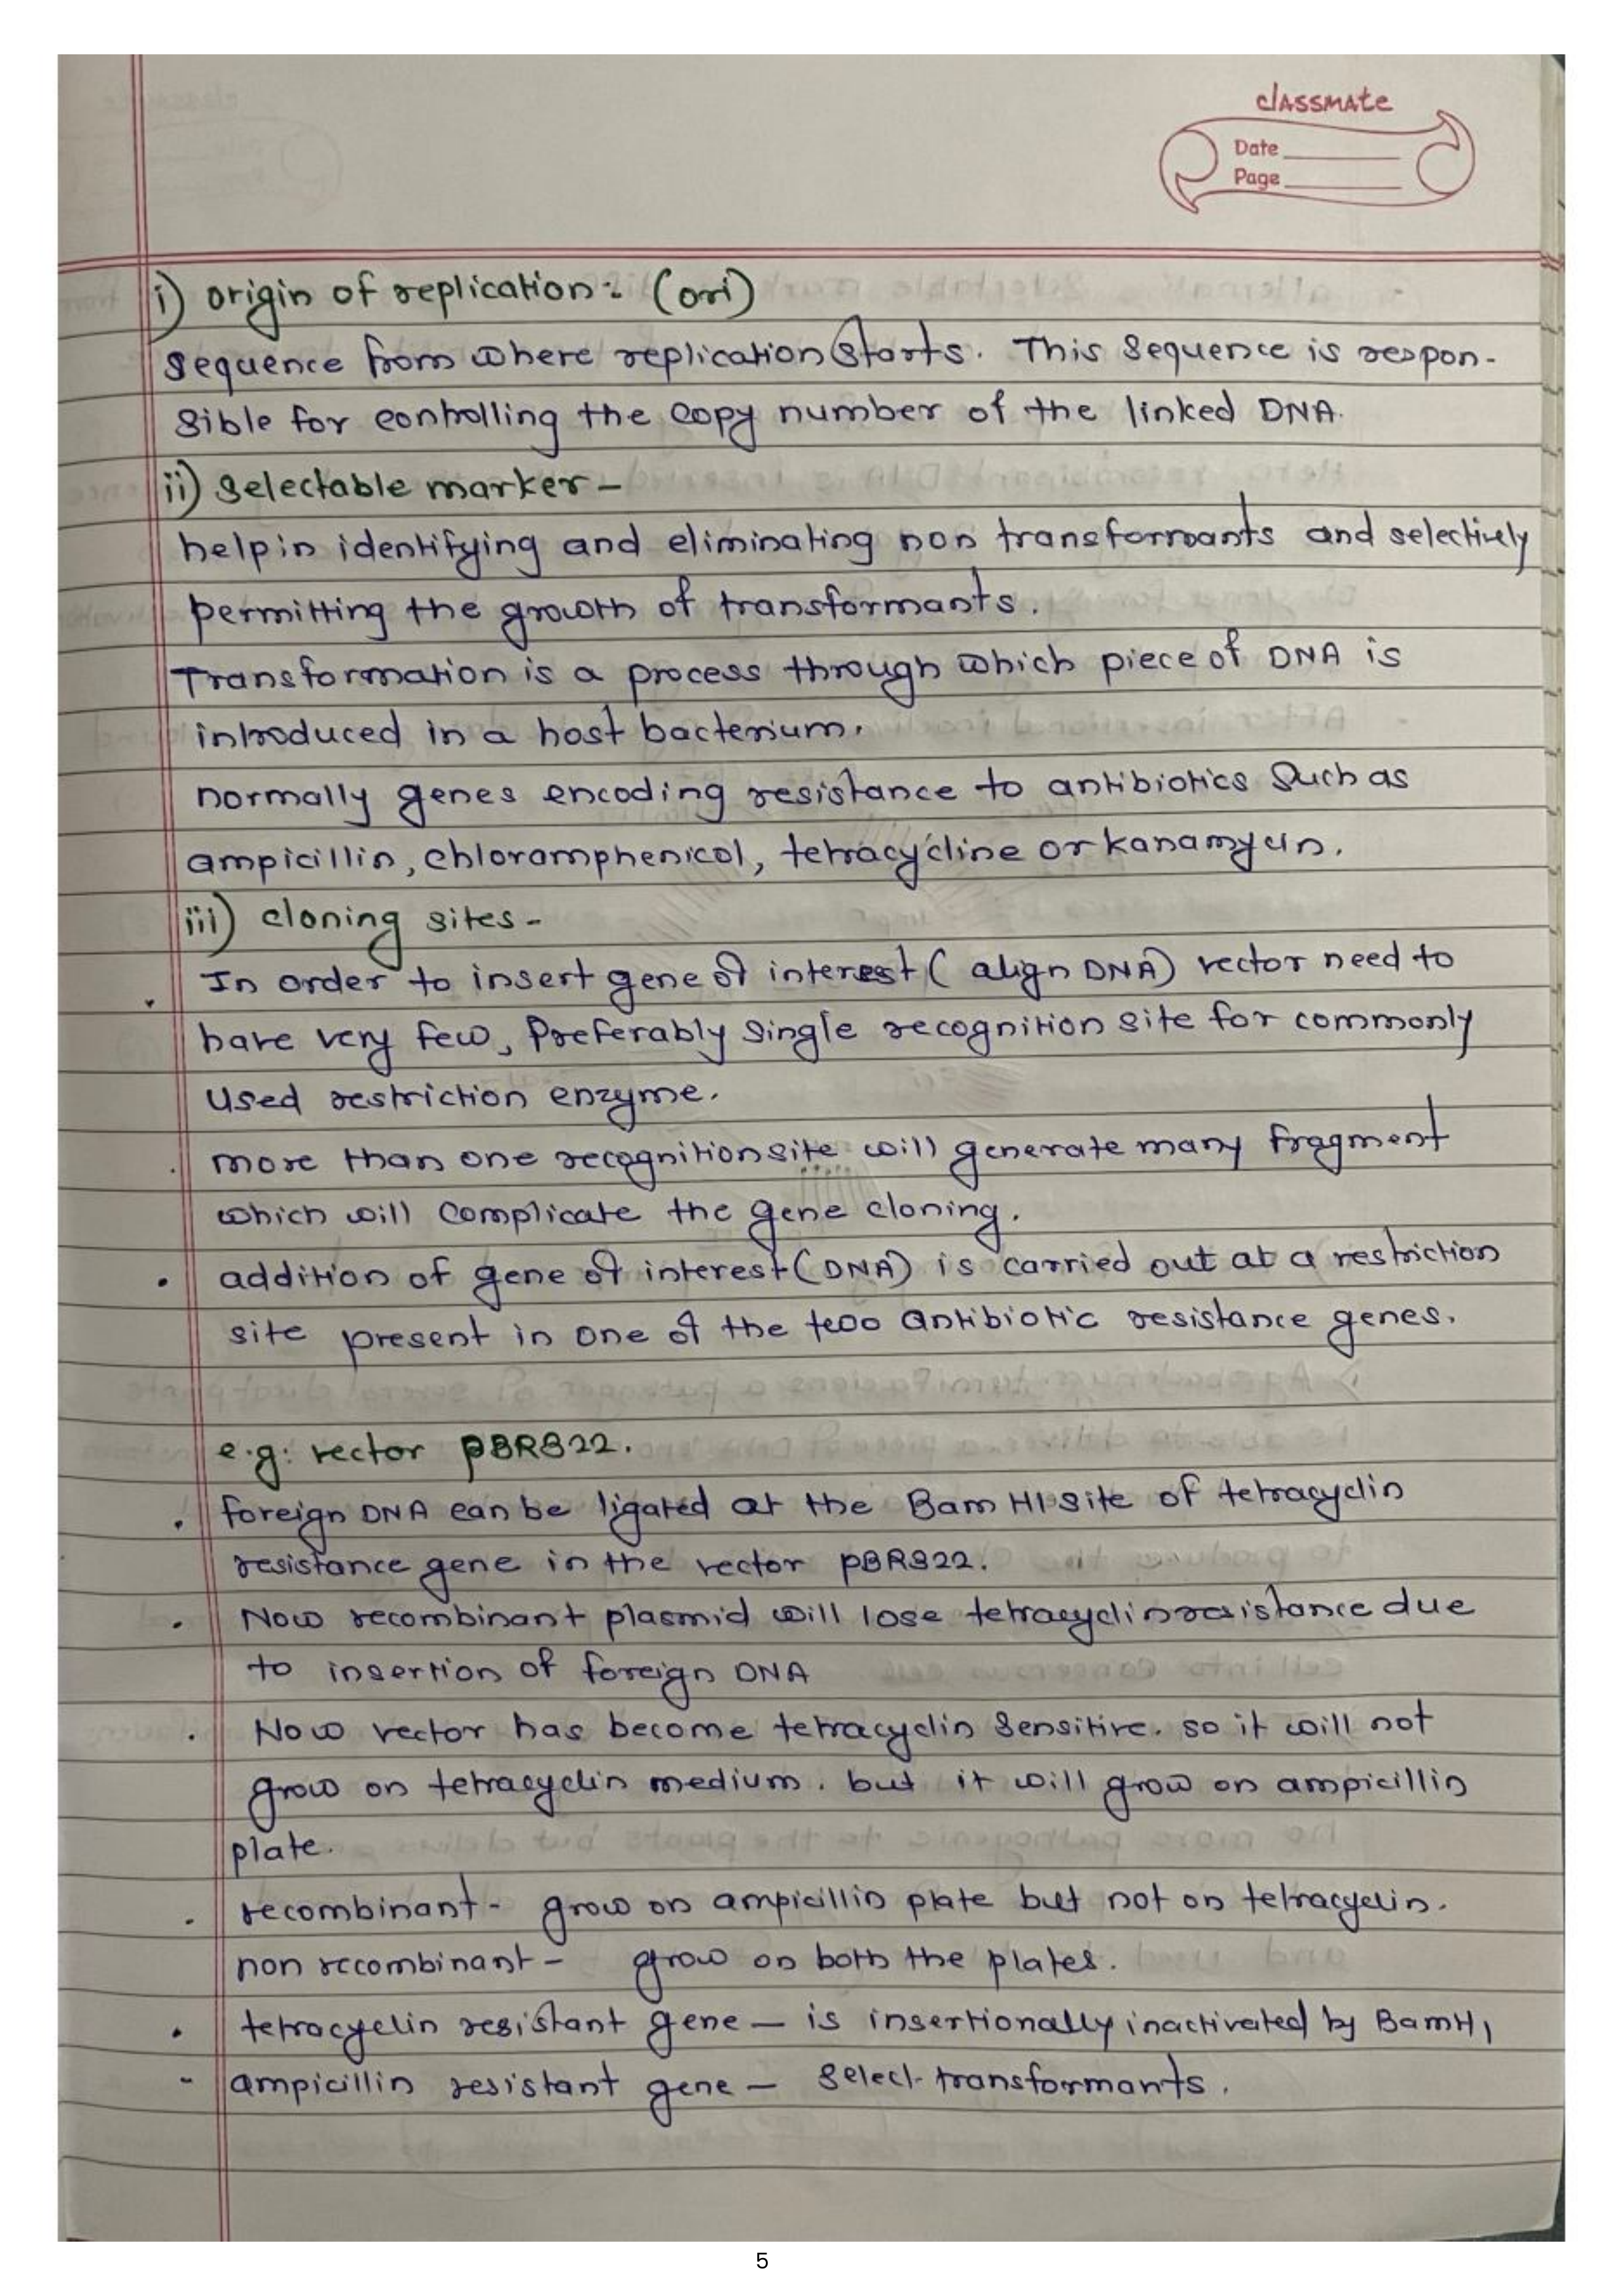 classmate
Date
Page
i) origin of replication : (ori)
sequence from where replication starts. This sequence is respon-
sible for controlling the copy number of the linked DNA.
ii) selectable marker -
help in identifying and eliminating non transformants and selectively
permitting the growth of transformants.
Transformation is a process through which piece of DNA is
introduced in a host bacterium.
normally genes encoding resistance to antibiotics such as
ampicillin, chloramphenicol, tetracycline or kanamycin.
iii) cloning sites -
In order to insert gene of interest ( align DNA) vector need to
have very few, Preferably single recognition site for commonly
used restriction enzyme.
. more than one recognition site will generate many fragment
which will complicate the gene cloning.
. addition of gene of interest (DNA) is carried out at a restriction
site present in one of the two antibiotic resistance genes.
e.g: vector pBR322.
. foreign DNA can be ligated at the Bam HI site of tetracyclin
resistance gene in the vector pBR322.
. Now recombinant plasmid will lose tetracyclin resistance due
to insertion of foreign DNA
. Now vector has become tetracyclin sensitive. so it will not
grow on tetracyclin medium. but it will grow on ampicillin
plate.
. recombinant - grow on ampicillin plate but not on tetracyclin.
non recombinant - grow on both the plates.
. tetracyclin resistant gene - is insertionally inactivated by BamH1
- ampicillin resistant gene - select transformants.
5